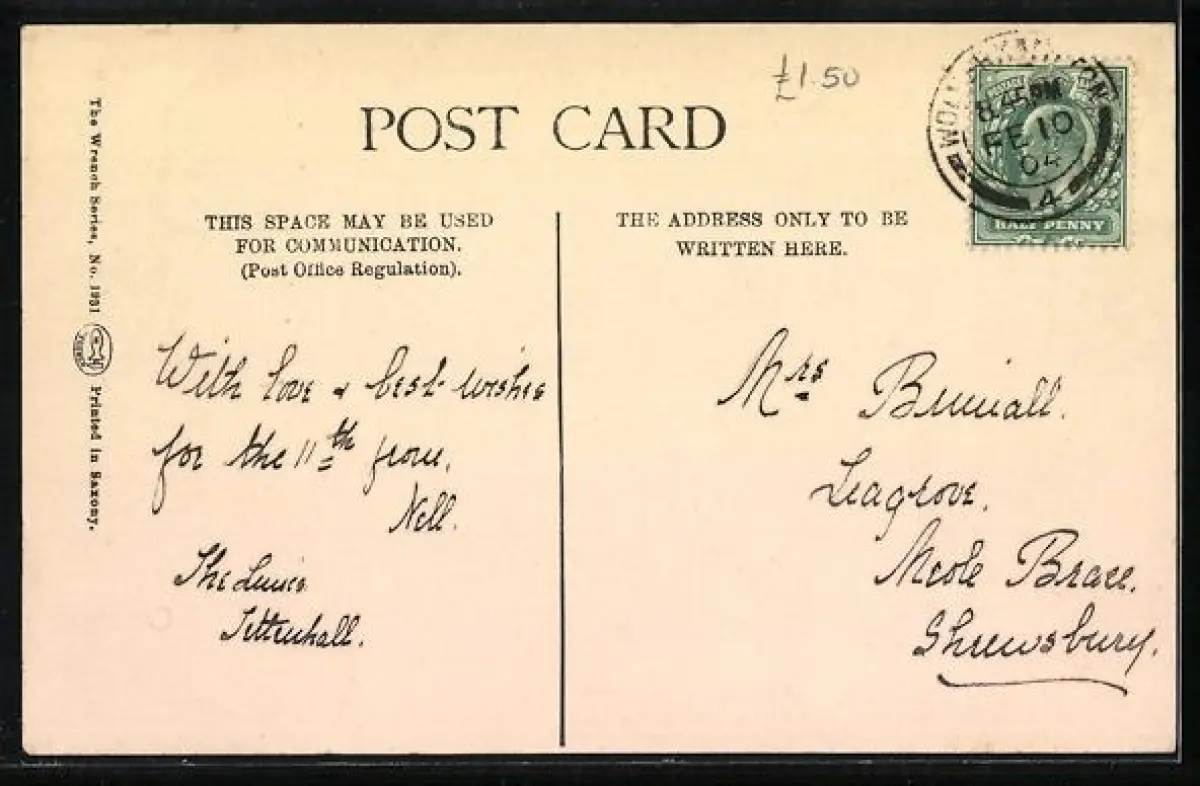 £1.50
POST CARD
WOLVERHAMPTON
8.45PM
FE 10
04
4
HALF PENNY
THIS SPACE MAY BE USED
FOR COMMUNICATION.
(Post Office Regulation).
THE ADDRESS ONLY TO BE
WRITTEN HERE.
The Wrench Series, No. 1931
Printed in Saxony.
With love & best wishes
for the 11th from
Nell.
The
Tettenhall.
Mrs
Leagrove.
Meole Brace.
Shrewsbury.